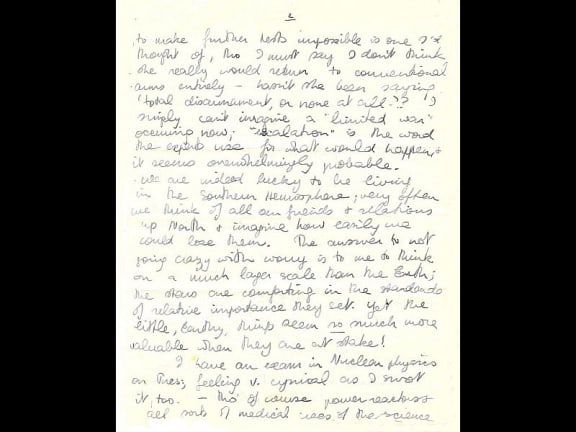 2
to make further tests impossible is one I'd
thought of, tho I must say I don't think
she really would return to conventional
arms entirely – hasn't she been saying
'total disarmament, or none at all'?? I
simply can't imagine a "limited war"
occuring now; "escalation" is the word
the experts use for what would happen &
it seems overwhelmingly probable.
We are indeed lucky to be living
in the Southern Hemisphere; very often
we think of all our friends & relations
up North & imagine how easily we
could lose them. The answer to not
going crazy with worry is to me to think
on a much larger scale than the Earth;
the stars are comforting in the standards
of relative importance they set. Yet the
little, Earthy, things seem so much more
valuable when they are at stake!
I have an exam in Nuclear physics
on Thurs; feeling v. cynical as I swot
it, too. – tho' of course power reactors &
all sorts of medical uses of the science